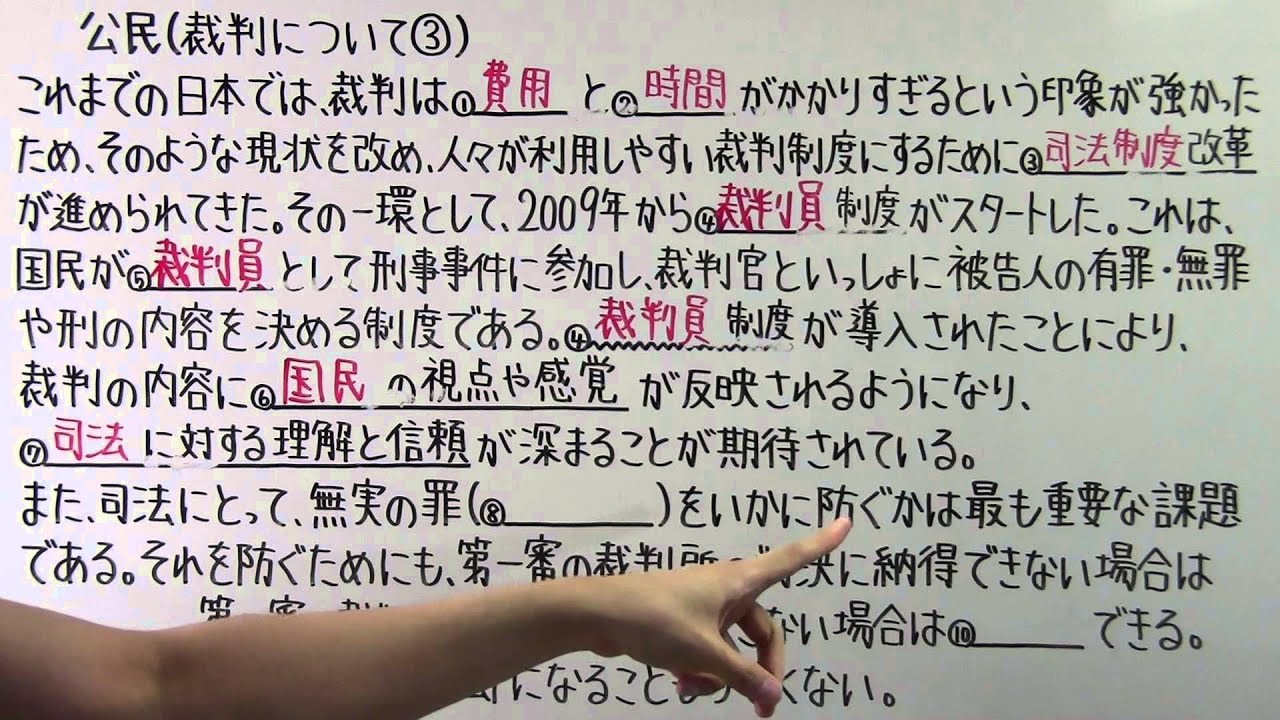 公民(裁判について③)
これまでの日本では、裁判は①費用と②時間がかかりすぎるという印象が強かった
ため、そのような現状を改め、人々が利用しやすい裁判制度にするために③司法制度改革
が進められてきた。その一環として、2009年から④裁判員制度がスタートした。これは、
国民が⑤裁判員として刑事事件に参加し、裁判官といっしょに被告人の有罪・無罪
や刑の内容を決める制度である。④裁判員制度が導入されたことにより、
裁判の内容に⑥国民の視点や感覚が反映されるようになり、
⑦司法に対する理解と信頼が深まることが期待されている。
また、司法にとって、無実の罪(⑧)をいかに防ぐかは最も重要な課題
である。それを防ぐためにも、第一審の裁判所 決に納得できない場合は
ない場合は⑩できる。
になることも くない。